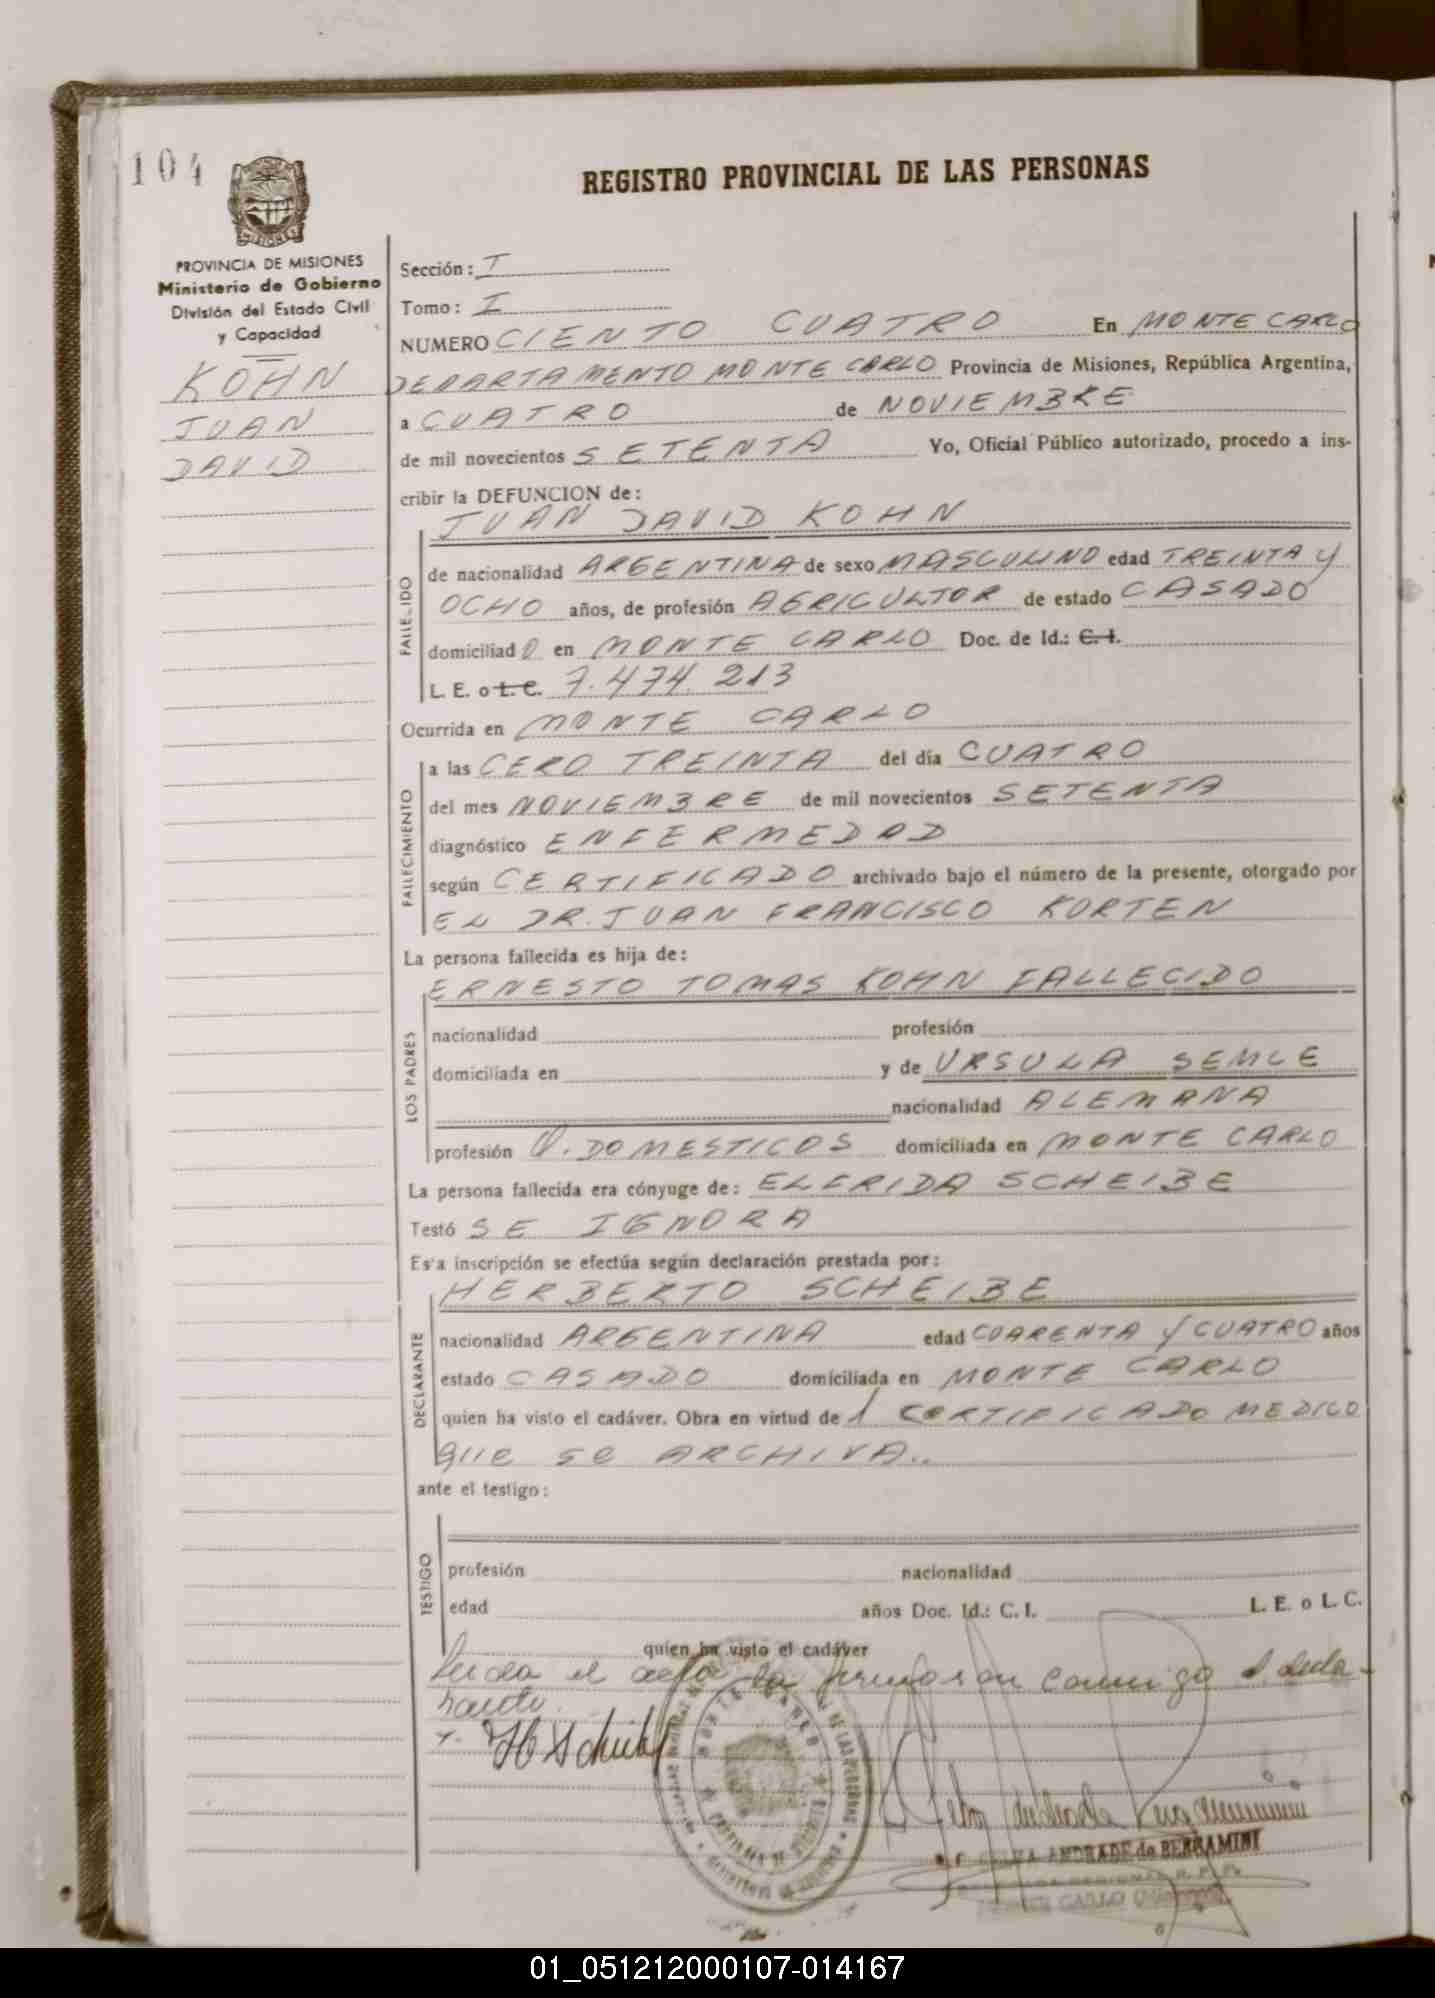 104
REGISTRO PROVINCIAL DE LAS PERSONAS
MISIONES
PROVINCIA DE MISIONES
Ministerio de Gobierno
División del Estado Civil
y Capacidad
KOHN
JUAN
DAVID
Sección: I
Tomo: I
NUMERO CIENTO CUATRO En MONTE CARLO
DEPARTAMENTO MONTE CARLO Provincia de Misiones, República Argentina,
a CUATRO de NOVIEMBRE
de mil novecientos SETENTA Yo, Oficial Público autorizado, procedo a ins-
cribir la DEFUNCION de:
JUAN DAVID KOHN
FALLECIDO
de nacionalidad ARGENTINA de sexo MASCULINO edad TREINTA Y
OCHO años, de profesión AGRICULTOR de estado CASADO
domiciliado en MONTE CARLO Doc. de Id.: C. I.
L. E. o L. C. 7.474.213
Ocurrida en MONTE CARLO
FALLECIMIENTO
a las CERO TREINTA del día CUATRO
del mes NOVIEMBRE de mil novecientos SETENTA
diagnóstico ENFERMEDAD
según CERTIFICADO archivado bajo el número de la presente, otorgado por
EL DR. JUAN FRANCISCO KORTEN
La persona fallecida es hija de:
ERNESTO TOMAS KOHN FALLECIDO
LOS PADRES
nacionalidad profesión
domiciliada en y de URSULA SEMLE
nacionalidad ALEMANA
profesión Q. DOMESTICOS domiciliada en MONTE CARLO
La persona fallecida era cónyuge de: ELFRIDA SCHEIBE
Testó SE IGNORA
Esta inscripción se efectúa según declaración prestada por:
HERBERTO SCHEIBE
DECLARANTE
nacionalidad ARGENTINA edad CUARENTA Y CUATRO años
estado CASADO domiciliada en MONTE CARLO
quien ha visto el cadáver. Obra en virtud de 1 CERTIFICADO MEDICO
que se ARCHIVA..
ante el testigo:
TESTIGO
profesión nacionalidad
edad años Doc. Id.: C. I. L. E. o L. C.
quien ha visto el cadáver
Leida el acta la firmaron conmigo el decla-
rante.
H Scheibe
ANDRADE de BERGAMINI
01_051212000107-014167